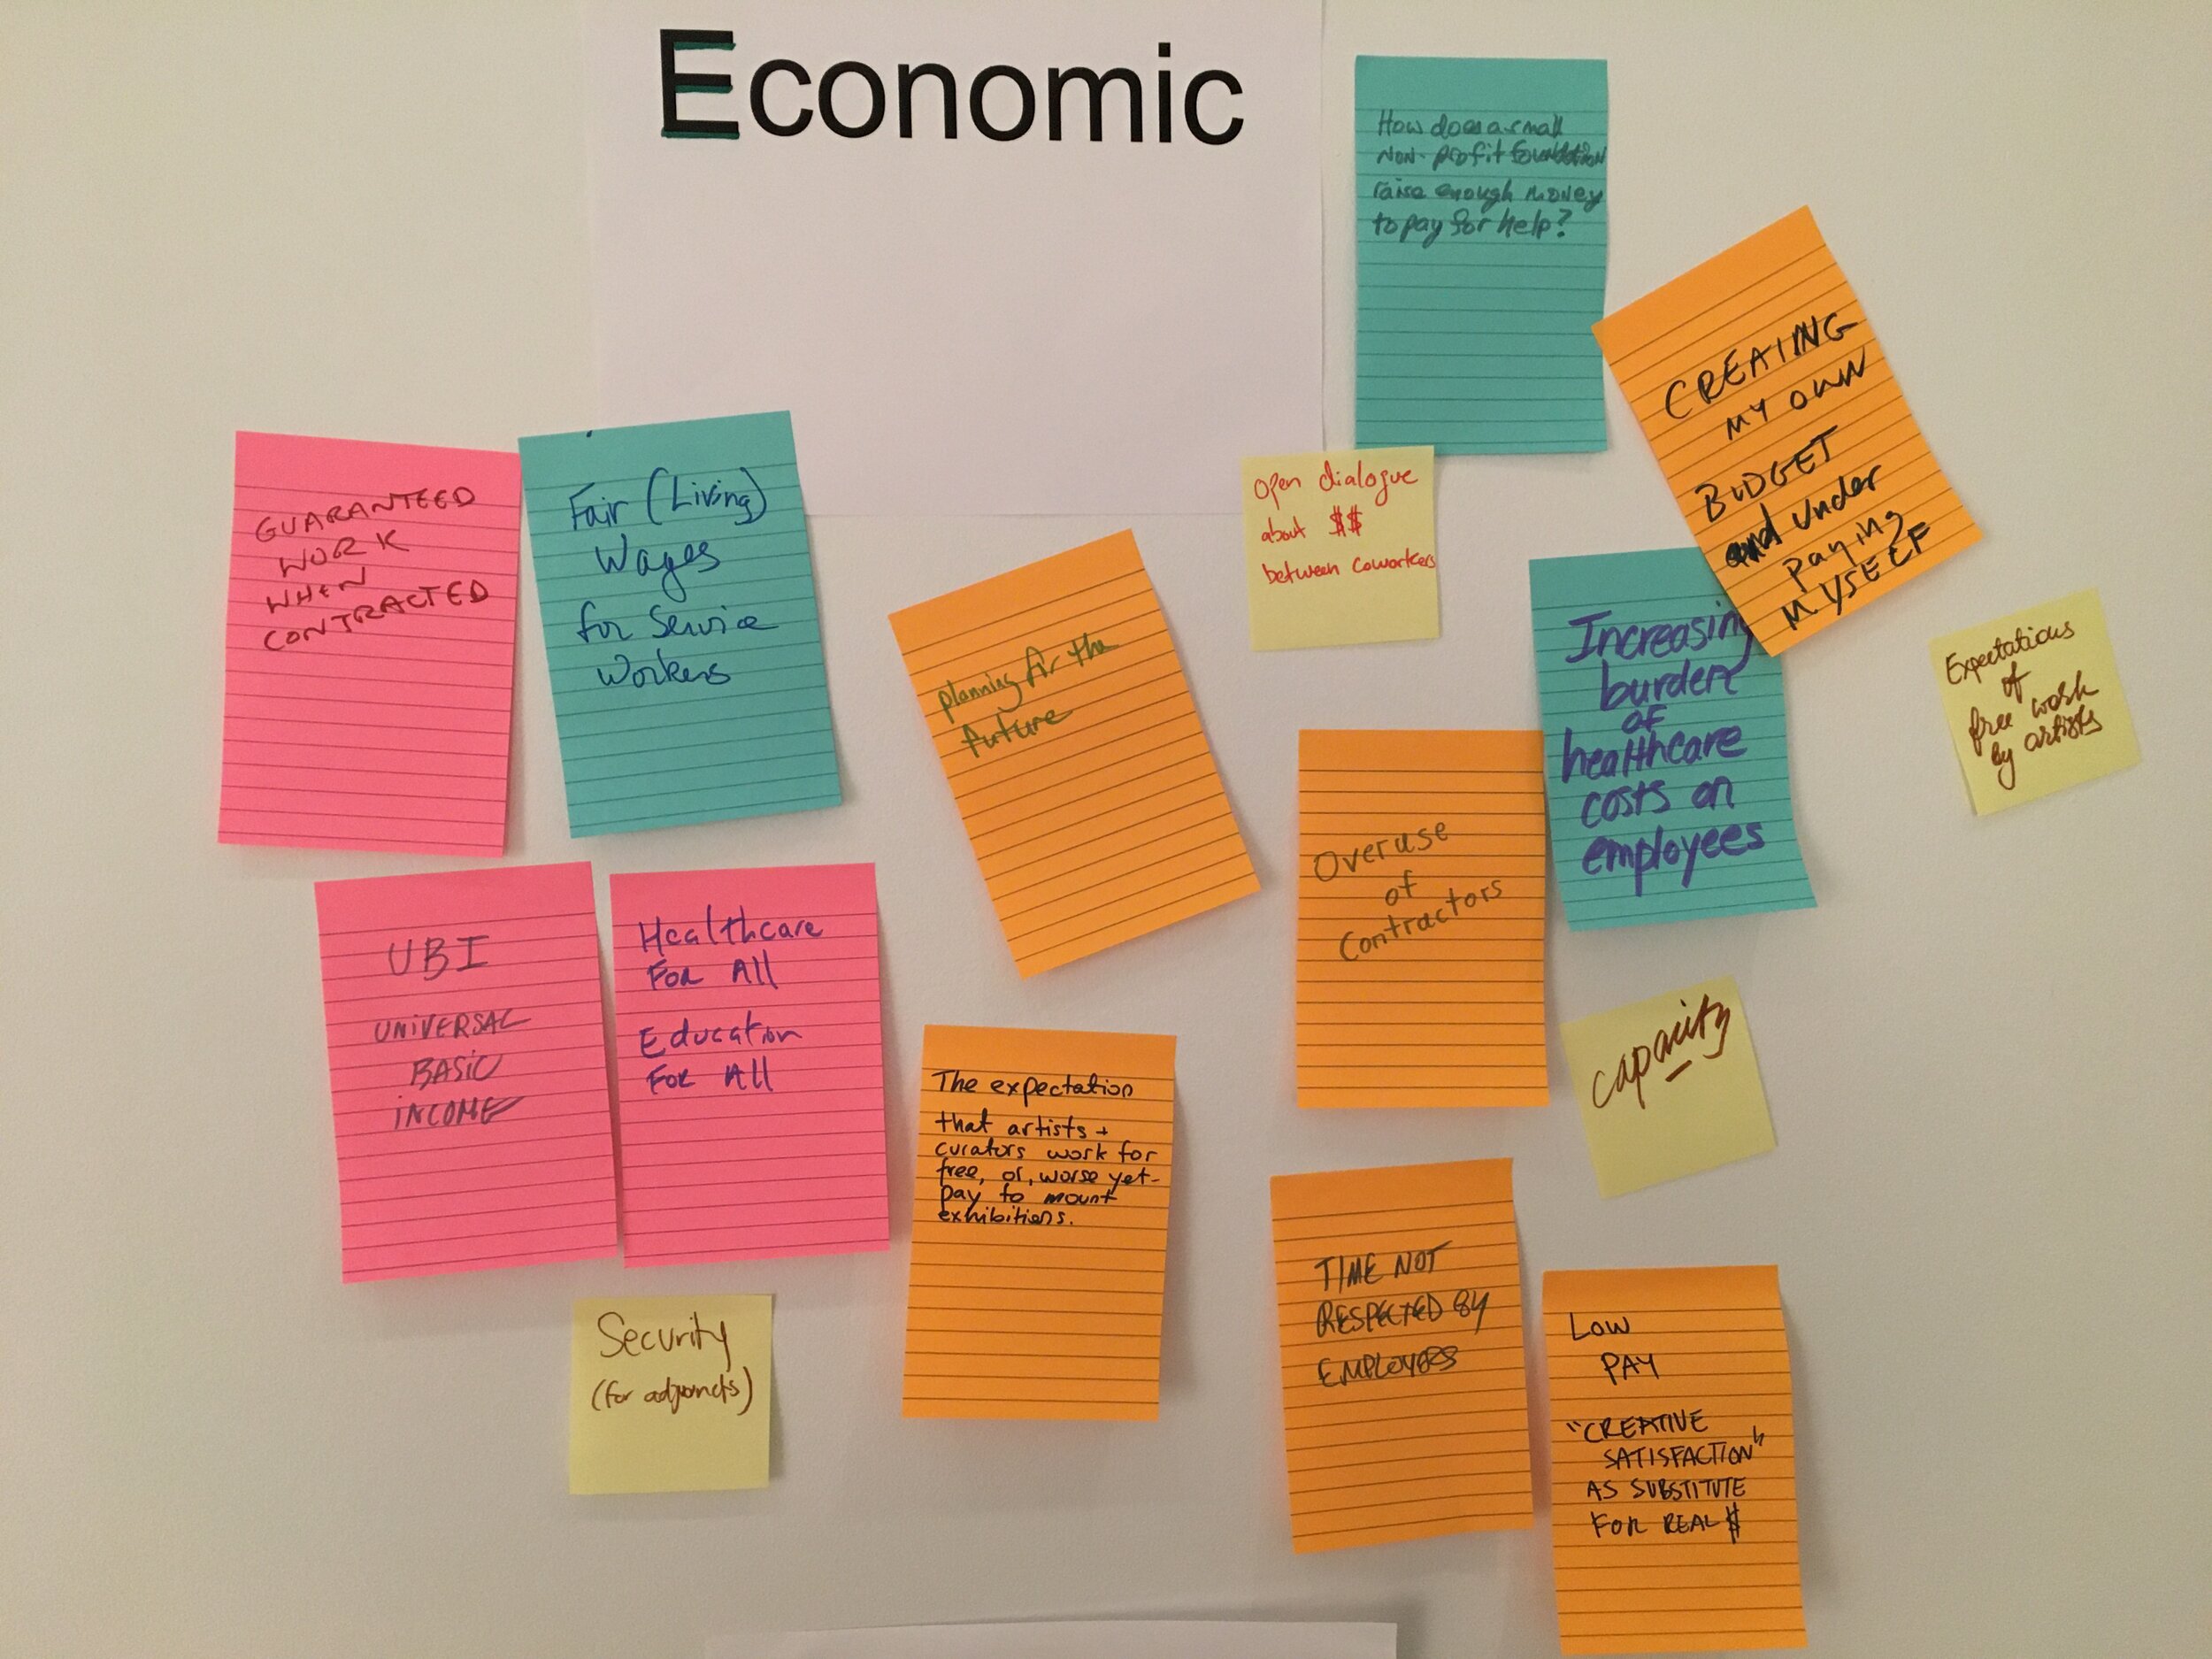 Economic
How does a small
non-profit foundation
raise enough money
to pay for help?
CREATING
MY OWN
BUDGET
and under
paying
MYSELF
GUARANTEED
WORK
WHEN
CONTRACTED
Fair (Living)
Wages
for Service
Workers
open dialogue
about $$
between coworkers
planning for the
future
Increasing
burden
of
healthcare
costs on
employees
Expectations
of
free work
by artists
Overuse
of
Contractors
UBI
UNIVERSAL
BASIC
INCOME
Healthcare
FOR All
Education
FOR All
capacity
The expectation
that artists +
curators work for
free, or, worse yet-
pay to mount
exhibitions.
TIME NOT
RESPECTED BY
EMPLOYERS
Security
(for adjuncts)
LOW
PAY
"CREATIVE
SATISFACTION"
AS SUBSTITUTE
FOR REAL $